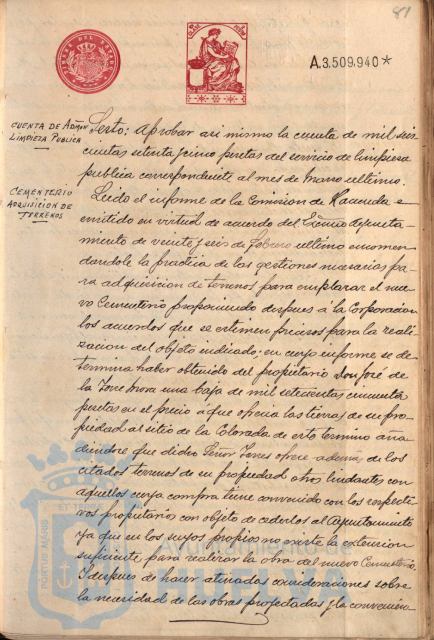 81
A.3.509.940*
CUENTA DE ADMÓN
LIMPIEZA PUBLICA
CEMENTERIO
ADQUISICION DE
TERRENOS
Sesto; Aprobar asi mismo la cuenta de mil seis
cientas setenta y cinco pesetas del servicio de limpieza
publica correspondiente al mes de Marzo ultimo.
Leido el informe de la Comision de Hacienda e-
mitido en virtual de acuerdo del Excmo Ayunta-
miento de veinte y seis de Febrero ultimo encomen-
dandole la practica de las gestiones necesarias pa-
ra adquisicion de terrenos para emplazar el nue-
vo Cementerio proponiendo despues á la Corporacion
los acuerdos que se estimen precisos para la reali-
zacion del objeto indicado; en cuyo informe se de-
termina haber obtenido del propietario Don José de
la Torre Mora una baja de mil setecientas cincuenta
pesetas en el precio á que ofrecia las tierras de su pro-
piedad al sitio de la Colorada de este termino aña-
diendose que dicho Señor Torres ofrece además de los
citados terrenos de su propiedad otros lindantes con
aquellos cuya compra tiene convenido con los respecti-
vos propietarios con objeto de cederlos al Ayuntamiento
ya que en los suyos propios no existe la extension
suficiente para realizar la obra del nuevo Cementerio.
Y despues de hacer atinadas consideraciones sobre
la necesidad de las obras proyectadas y la convenien-
PORTUS MARIS
Ayuntamiento de
HUELVA